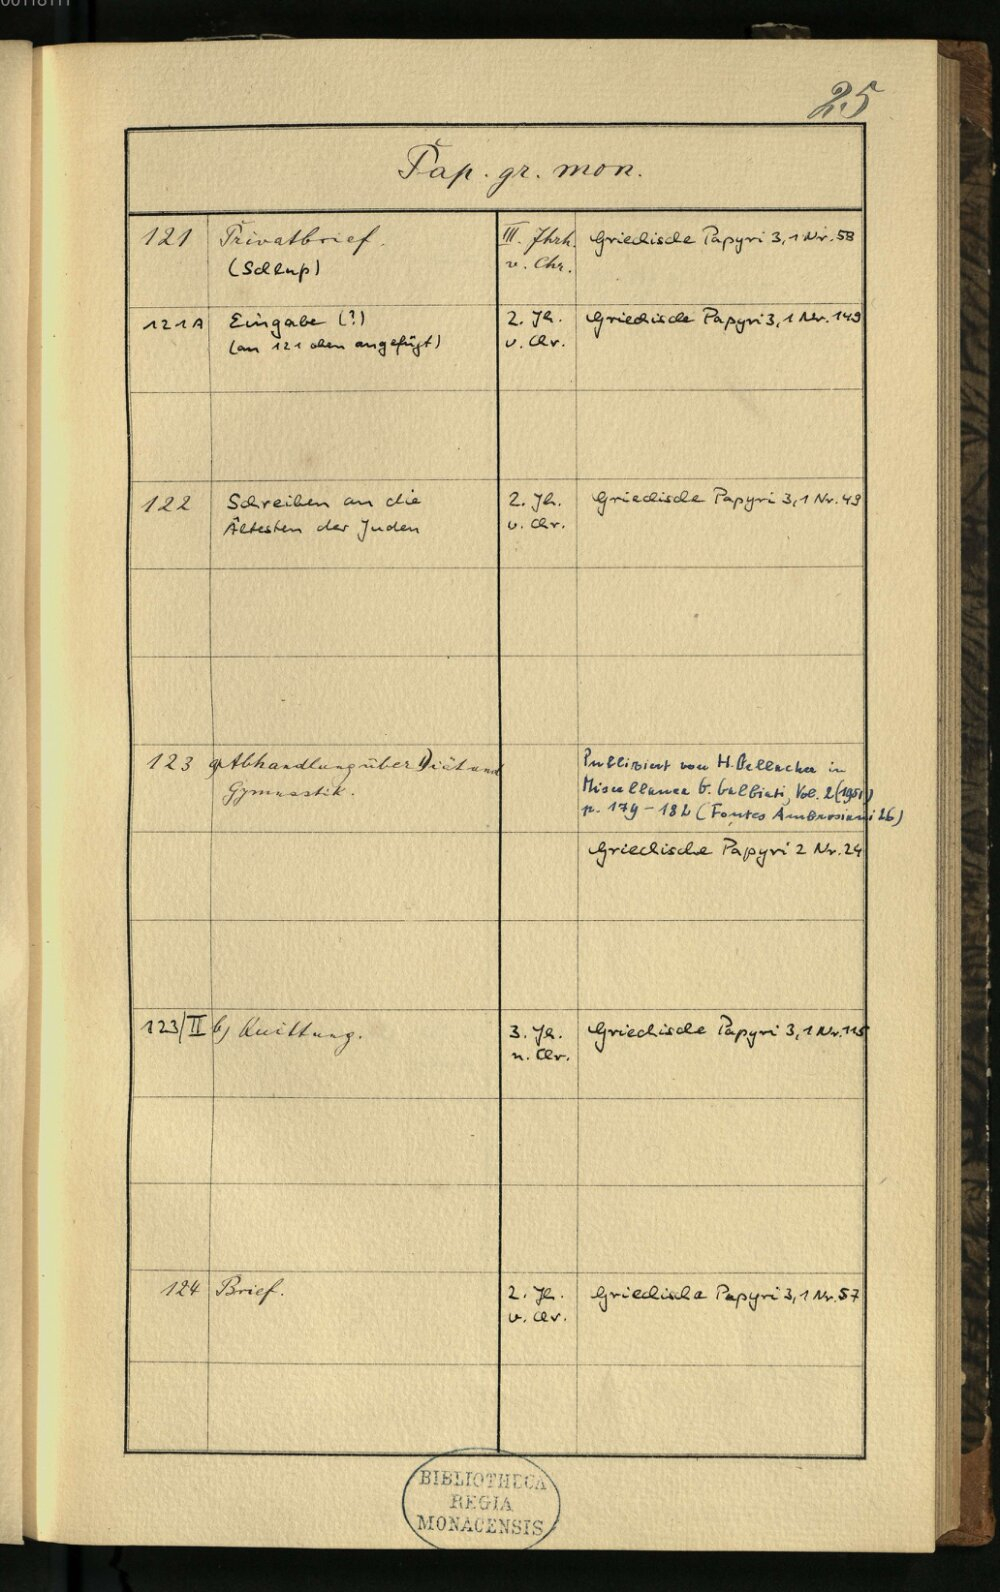 25
Pap. gr. mon.
121 Privatbrief. III. Jhrh. Griechische Papyri 3,1 Nr. 58
(Schlup) v. Chr.
121A Eingabe (?) 2. Jh. Griechische Papyri 3,1 Nr. 149
(an 121 oben angefügt) v. Chr.
122 Schreiben an die 2. Jh. Griechische Papyri 3,1 Nr. 49
Ältesten der Juden v. Chr.
123 a) Abhandlung über Diät und Publiziert von H. Gerstinger in
Gymnastik. Miscellanea G. Galbiati, Vol. 2 (1951)
p. 179-182 (Fontes Ambrosiani 26)
Griechische Papyri 2 Nr. 24
123/II b) Quittung. 3. Jh. Griechische Papyri 3,1 Nr. 115
n. Chr.
124 Brief. 2. Jh. Griechische Papyri 3,1 Nr. 57
v. Chr.
BIBLIOTHECA
REGIA
MONACENSIS